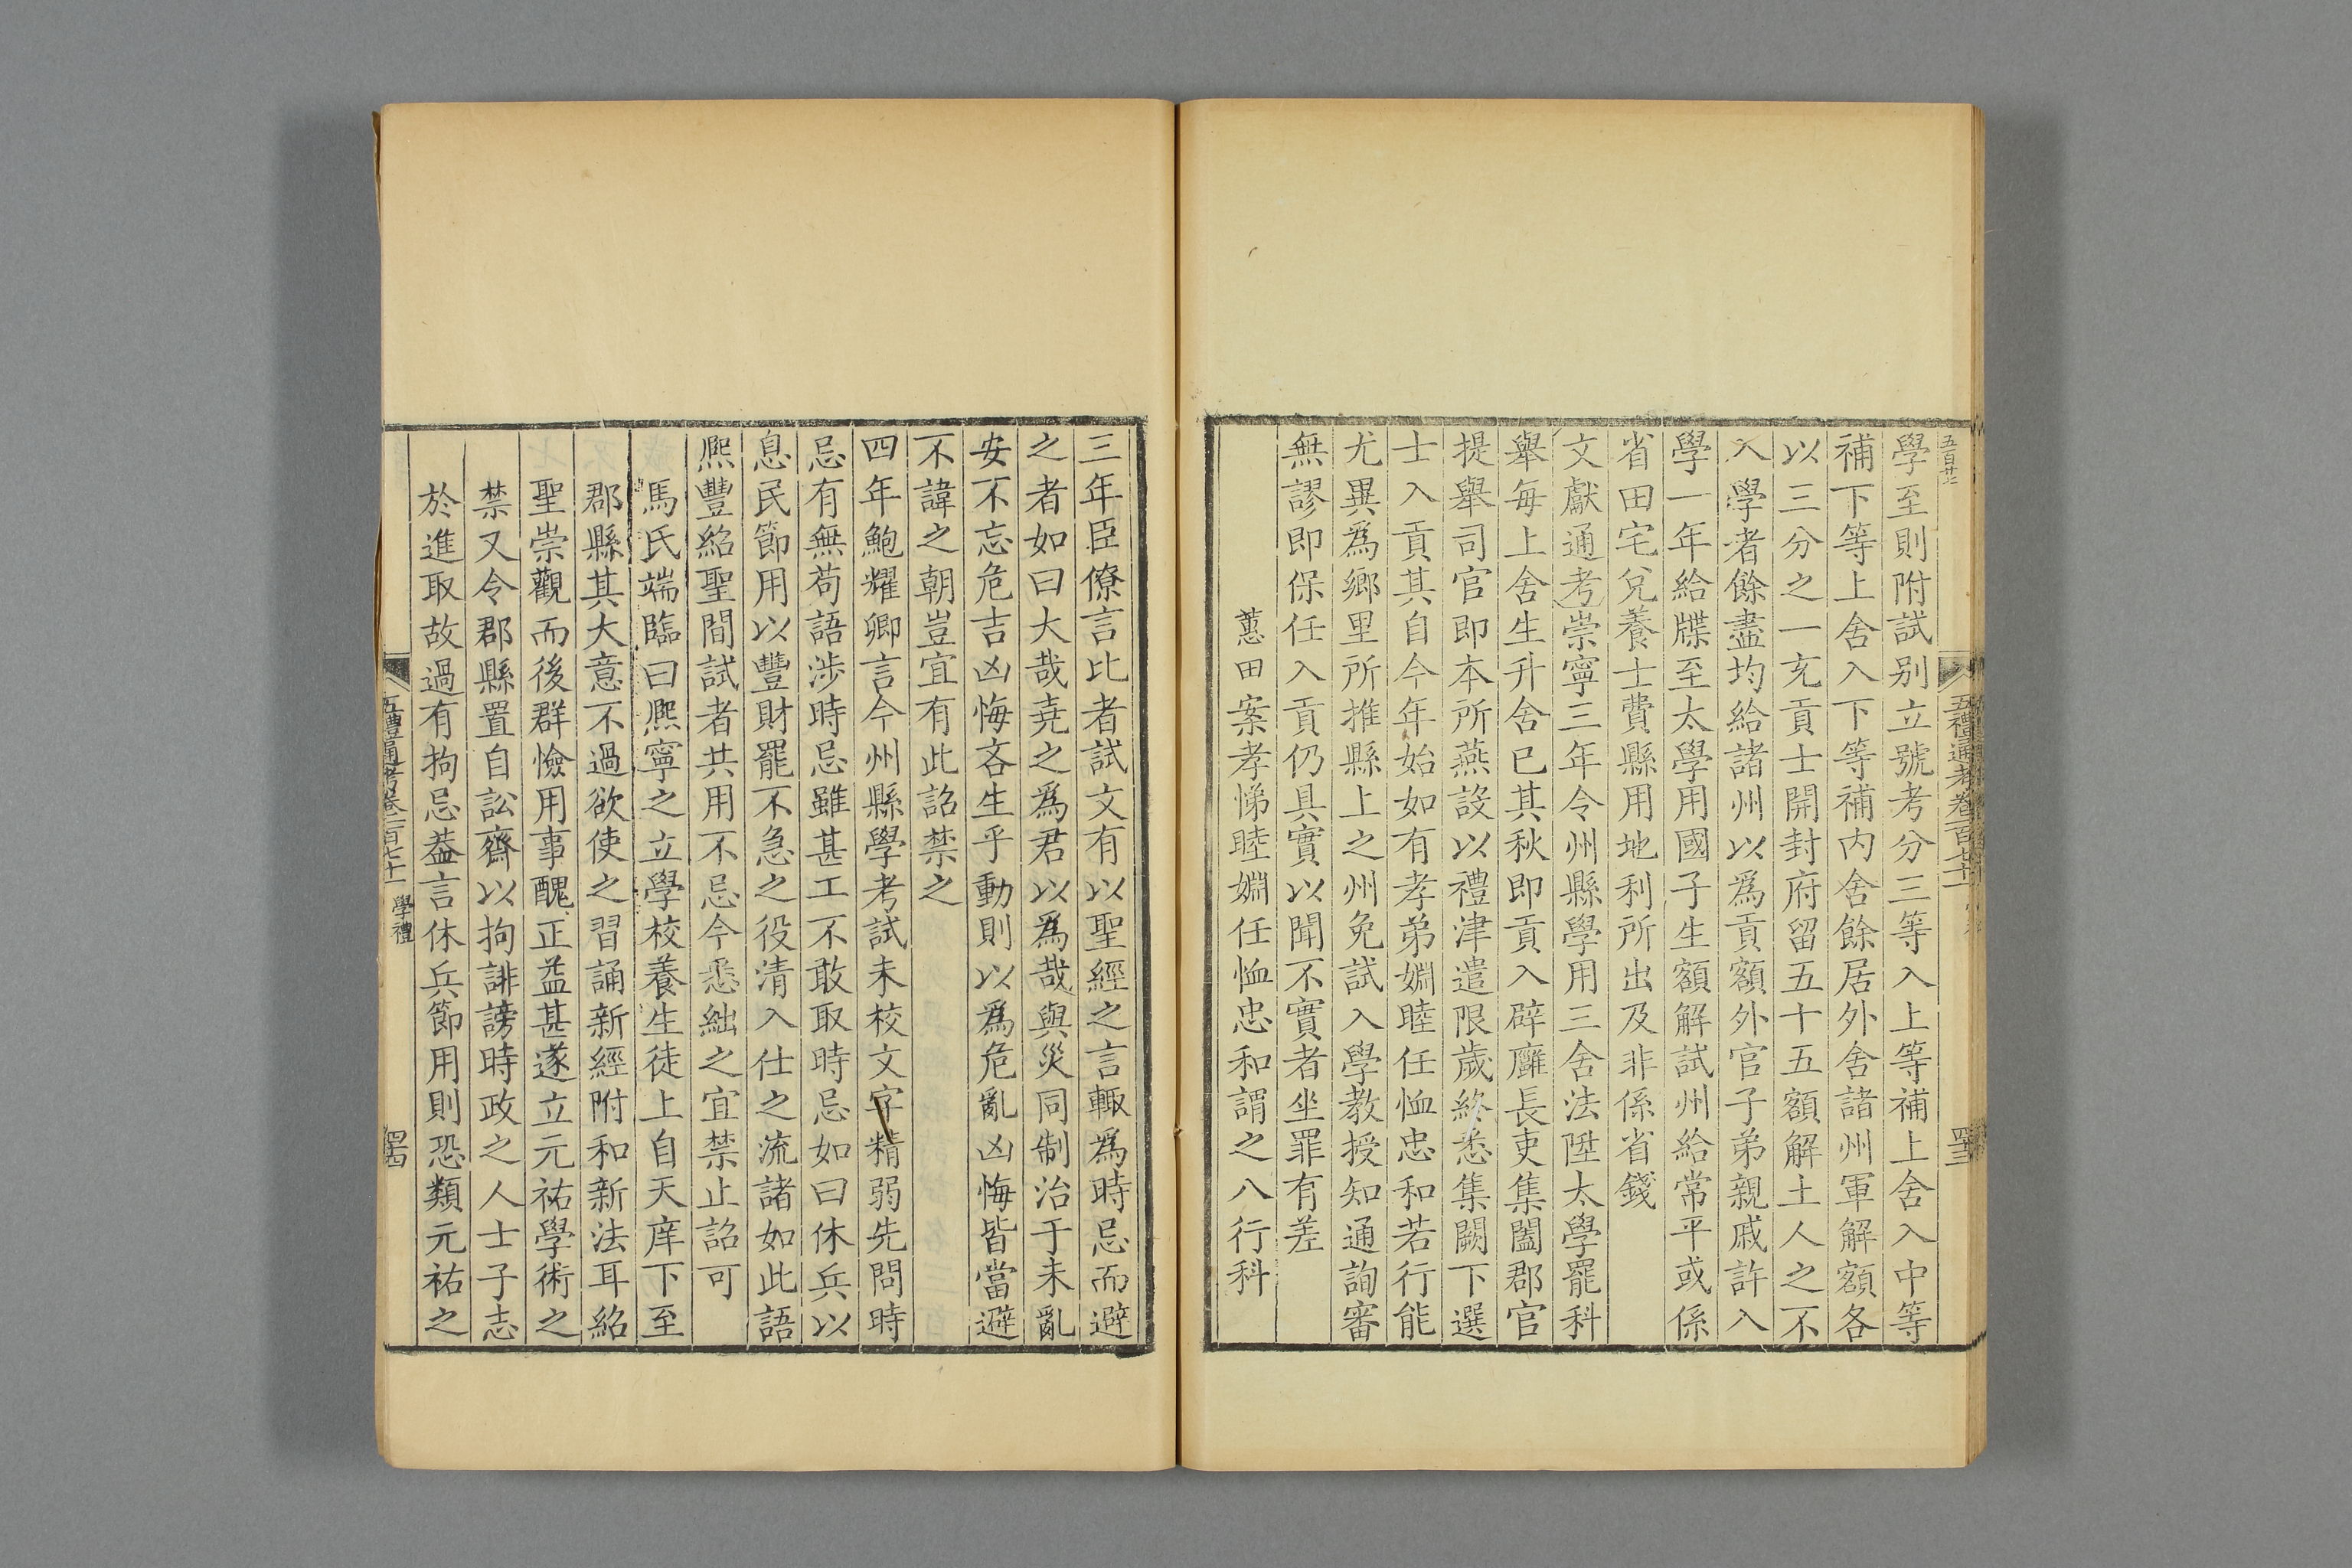 學至則附試别立號考分三等入上等補上舍入中等
補下等上舍入下等補内舍餘居外舍諸州軍解額各
以三分之一充貢士開封府留五十五額解土人之不
入學者餘盡均給諸州以為貢額外官子弟親戚許入
學一年給牒至太學用國子生額解試州給常平或係
省田宅充養士費縣用地利所出及非係省錢
文獻通考崇寧三年令州縣學用三舍法陞太學罷科
舉每上舍生升舍已其秋即貢入辟廱長吏集闔郡官
提舉司官即本所燕設以禮津遣限歲終悉集闕下選
士入貢其自今年始如有孝弟婣睦任恤忠和若行能
尤異為鄉里所推縣上之州免試入學教授知通詢審
無謬即保任入貢仍具實以聞不實者坐罪有差
蕙田案孝悌睦婣任恤忠和謂之八行科
三年臣僚言比者試文有以聖經之言輙為時忌而避
之者如曰大哉堯之為君以為哉與災同制治于未亂
安不忘危吉凶悔吝生乎動則以為危亂凶悔皆當避
不諱之朝豈宜有此詔禁之
四年鮑耀卿言今州縣學考試未校文字精弱先問時
忌有無苟語渉時忌雖甚工不敢取時忌如曰休兵以
息民節用以豐財罷不急之役清入仕之流諸如此語
熈豐紹聖間試者共用不忌今悉絀之宜禁止詔可
馬氏端臨曰熈寧之立學校養生徒上自天庠下至
郡縣其大意不過欲使之習誦新經附和新法耳紹
聖崇觀而後群憸用事醜正益甚遂立元祐學術之
禁又令郡縣置自訟齋以拘誹謗時政之人士子志
於進取故過有拘忌葢言休兵節用則恐類元祐之
五禮通考卷一百七十一 學禮